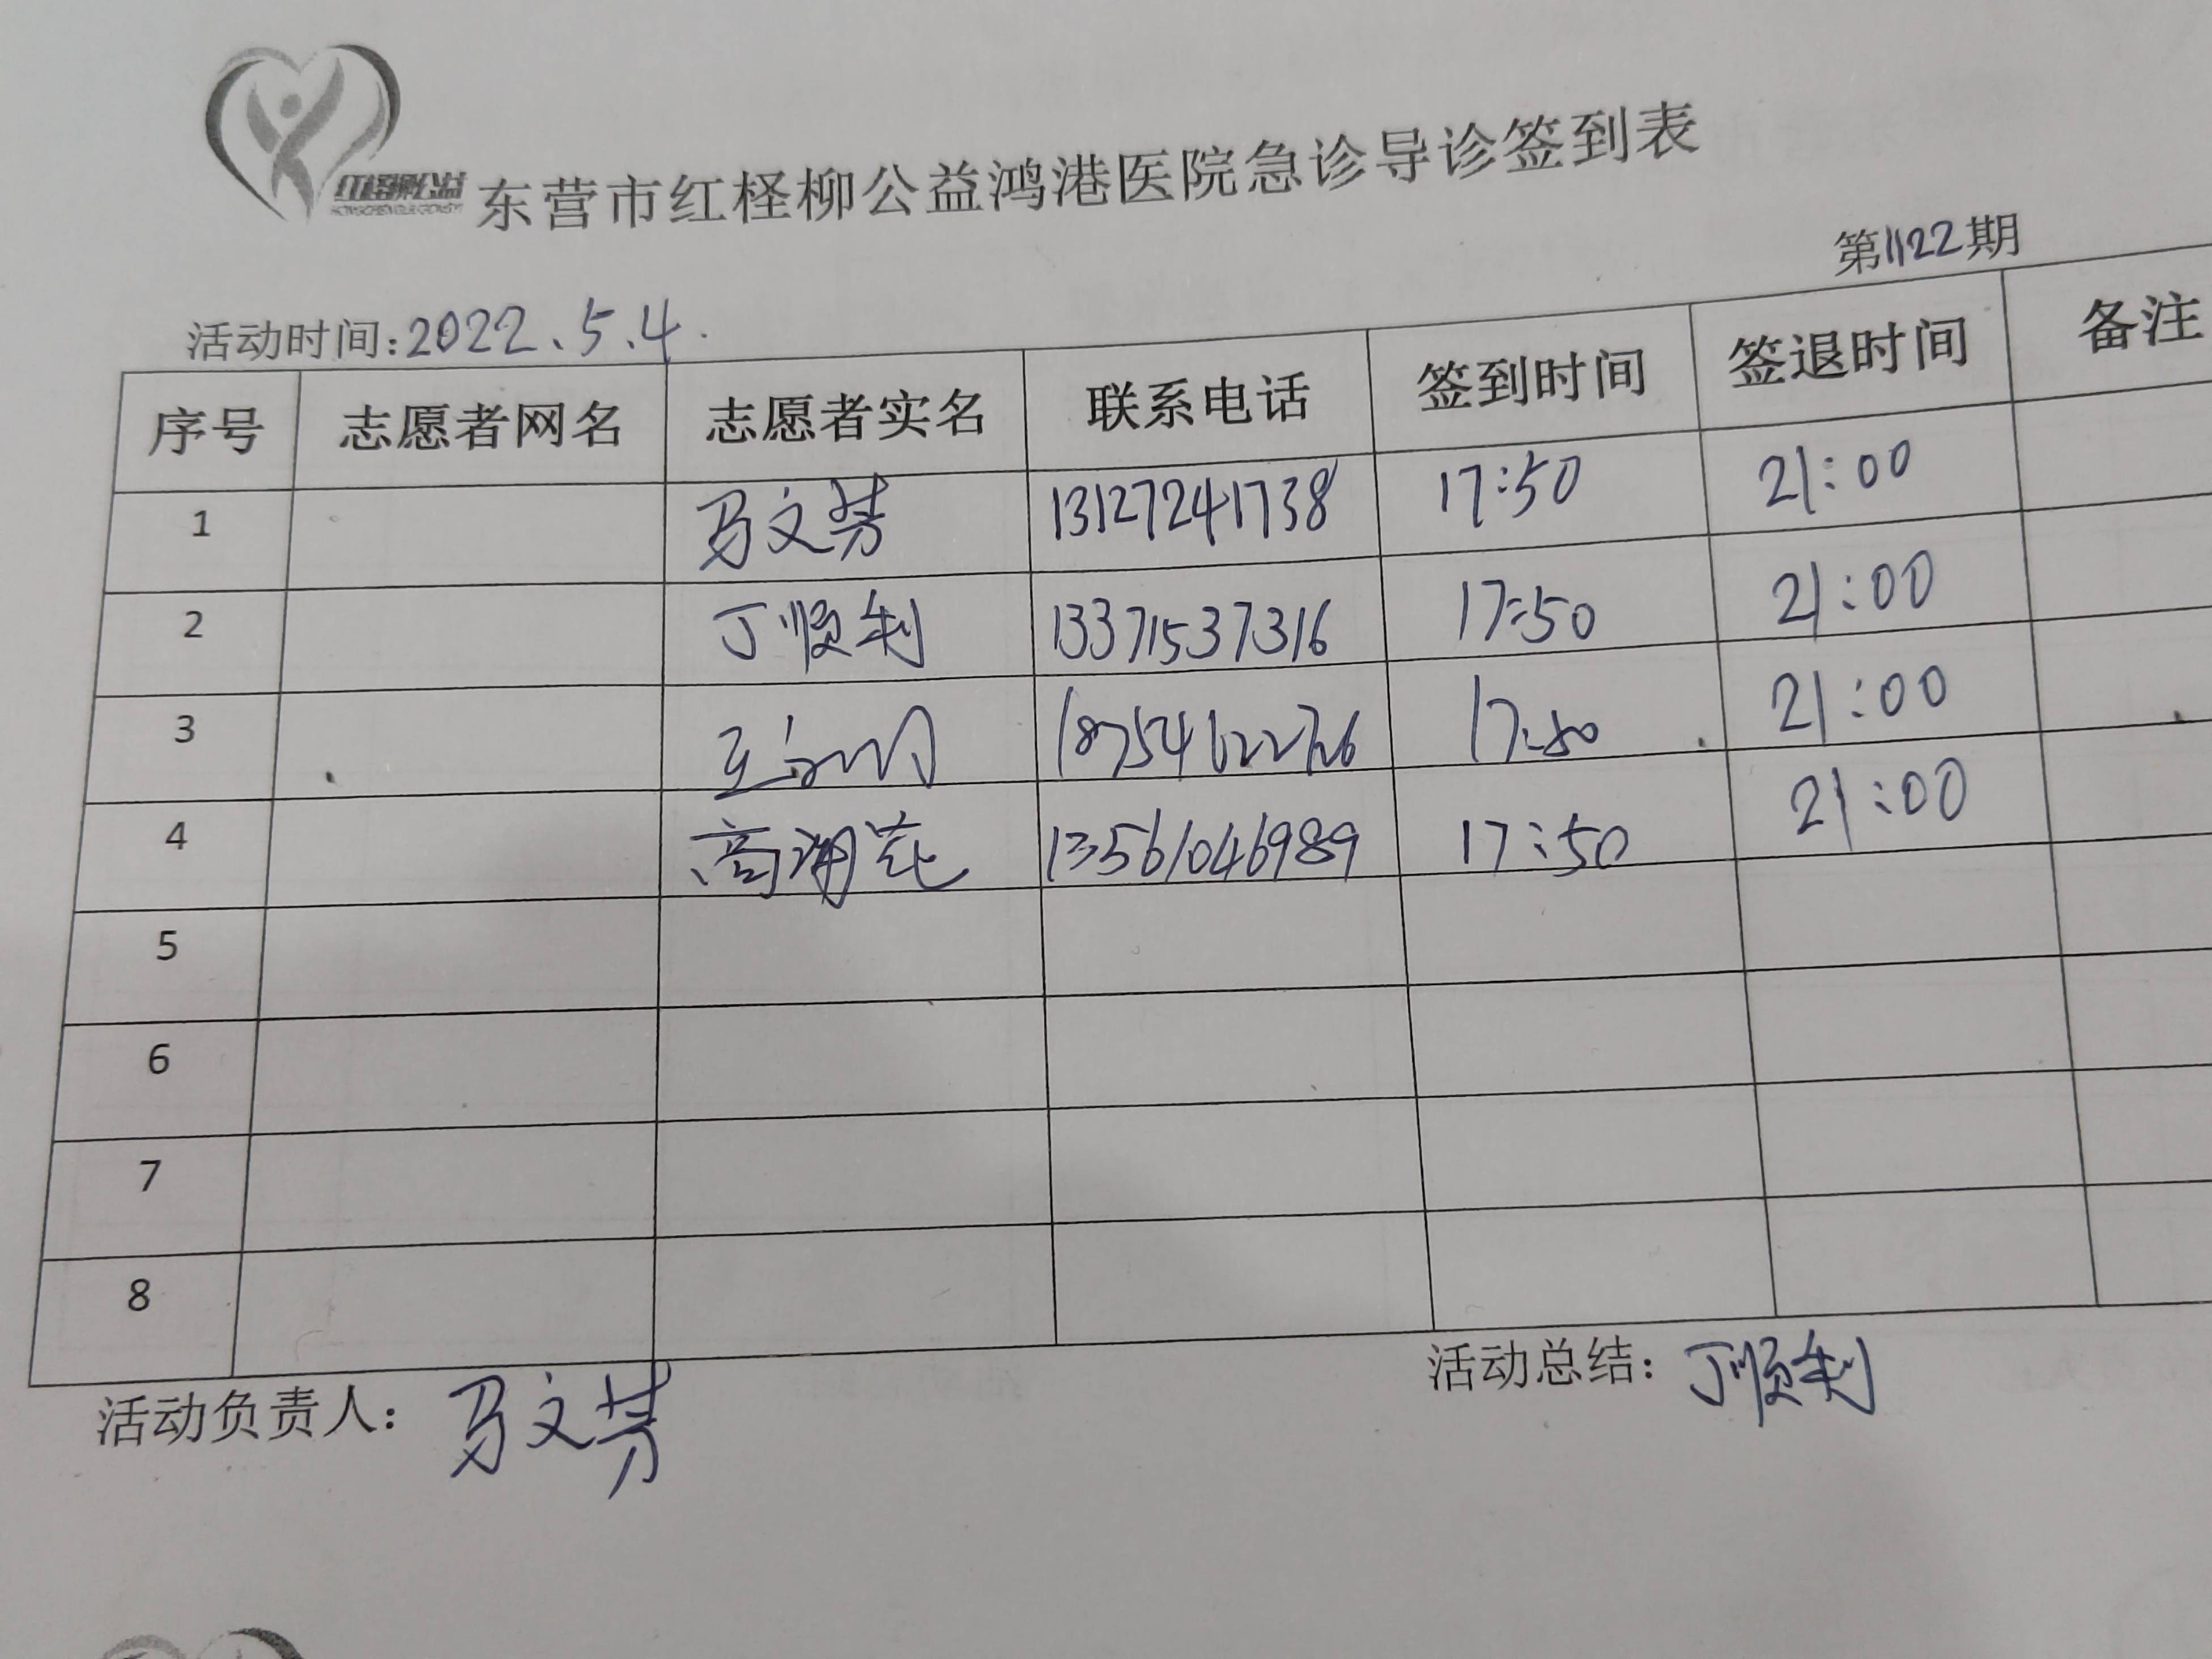 红柽柳公益
东营市红柽柳公益鸿港医院急诊导诊签到表
第1122期
活动时间:2022.5.4.
序号 志愿者网名 志愿者实名 联系电话 签到时间 签退时间 备注
1 马文芳 13127241738 17:50 21:00
2 丁顺利 13371537316 17:50 21:00
3 17:50 21:00
4 商湖花 13561046989 17:50 21:00
5
6
7
8
活动负责人: 马文芳 活动总结: 丁顺利